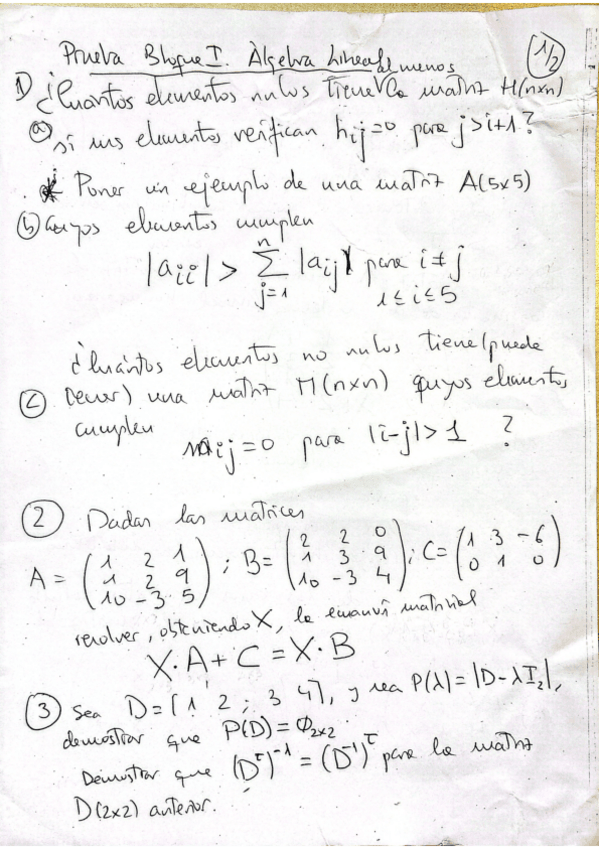 Prueba Bloque I. Álgebra Lineal 1/2
al menos
1) ¿Cuántos elementos nulos tiene la matriz H(n×n)
a) si sus elementos verifican hij=0 para j>i+1?
Poner un ejemplo de una matriz A(5×5)
b) cuyos elementos cumplen
|aii| > Σ |aij| para i≠j
n
j=1
1≤i≤5
¿Cuántos elementos no nulos tiene (puede
c) tener) una matriz M(n×n) cuyos elementos
cumplen
mij=0 para |i-j|>1 ?
2) Dadas las matrices
A = (1 2 1; 1 2 9; 10 -3 5) ; B = (2 2 0; 1 3 9; 10 -3 4) ; C = (1 3 -6; 0 1 0)
resolver, obteniendo X, la ecuación matricial
X·A+C=X·B
3) Sea D=[1 2; 3 4], y sea P(λ)=|D-λI₂|,
demostrar que P(D)=Φ₂ₓ₂
Demostrar que (Dᵗ)⁻¹=(D⁻¹)ᵗ para la matriz
D(2×2) anterior.